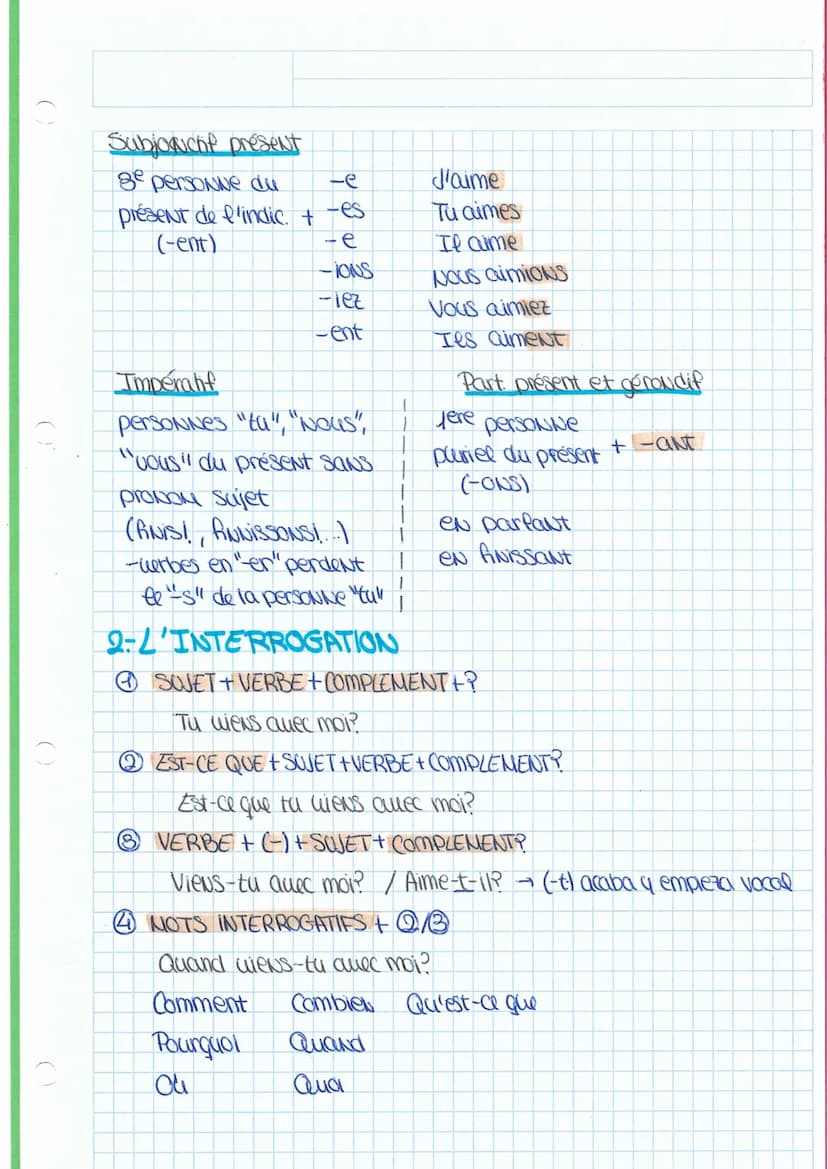 Subjonctif présent
3e personne du -e J'aime
présent de l'indic. + -es Tu aimes
(-ent) -e Il aime
-ions Nous aimions
-iez Vous aimiez
-ent Ils aiment
Impératif
personnes "tu", "nous",
"vous" du présent sans
pronom sujet
(finis!, finissons!...)
-verbes en "-er" perdent
le "-s" de la personne "tu"
Part. présent et gérondif
1ere personne
pluriel du présent + -ant
(-ons)
en parlant
en finissant
2-L'INTERROGATION
① SUJET+VERBE+COMPLEMENT+?
Tu viens avec moi?
② EST-CE QUE+SUJET+VERBE+COMPLEMENT?
Est-ce que tu viens avec moi?
③ VERBE + (-) + SUJET + COMPLEMENT?
Viens-tu avec moi? / Aime-t-il? → (-t) acaba y empieza vocal
④ MOTS INTERROGATIFS + ②/③
Quand viens-tu avec moi?
Comment Combien Qu'est-ce que
Pourquoi Quand
Où Quoi